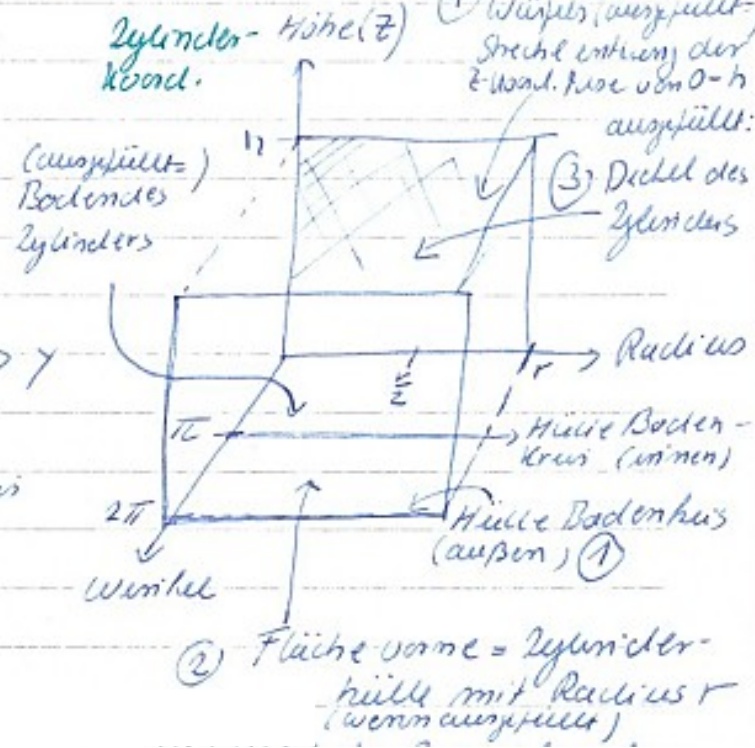 Zylinder-
Koord.
Höhe (Z)
Würfels (ausgefüllt=
Strecke entlang der
von 0-h
ausgefüllt:
h
(ausgefüllt=)
Boden des
Zylinders
③ Deckel des
Zylinders
y
Radius
r
r/2
π
Hülle Boden-
kreis (innen)
2π
Hülle Bodenkreis
(außen) ①
Winkel
② Fläche vorne = Zylinder-
hülle mit Radius r
(wenn ausgefüllt)